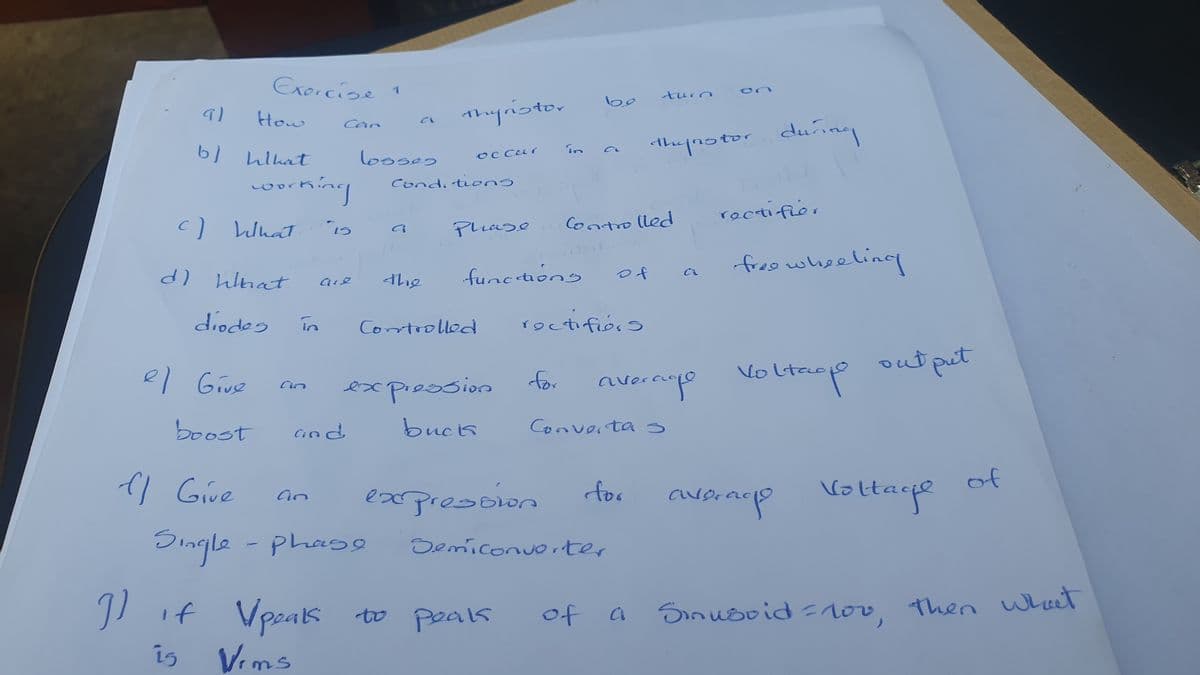 Exercise 1
a) How can a thyristor be turn on
b) What losses occur in a thyristor during
working conditions
c) What is a Phase Controlled rectifier
d) What are the functions of a freewheeling
diodes in Controlled rectifiers
e) Give an expression for average Voltage output
boost and buck Converters
f) Give an expression for average Voltage of
Single - phase Semiconverter
g) if Vpeak to peak of a Sinusoid = 100, then what
is Vrms